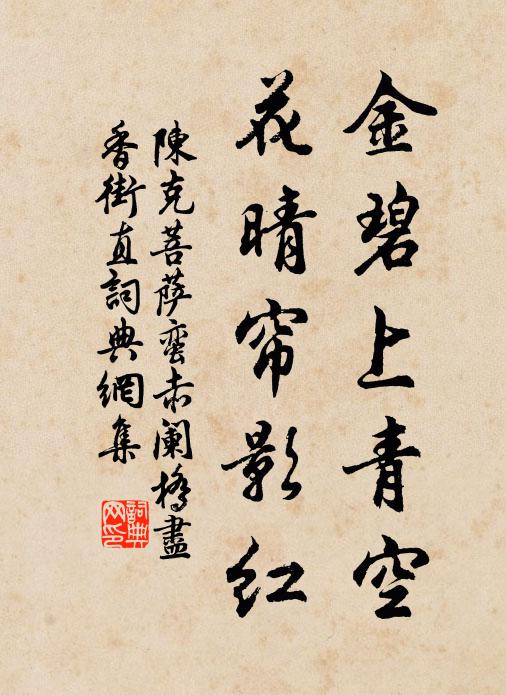 金碧上青空
花晴帘影红
陳克菩萨蛮赤阑橋盡
香街直詞典網集
詞典网印